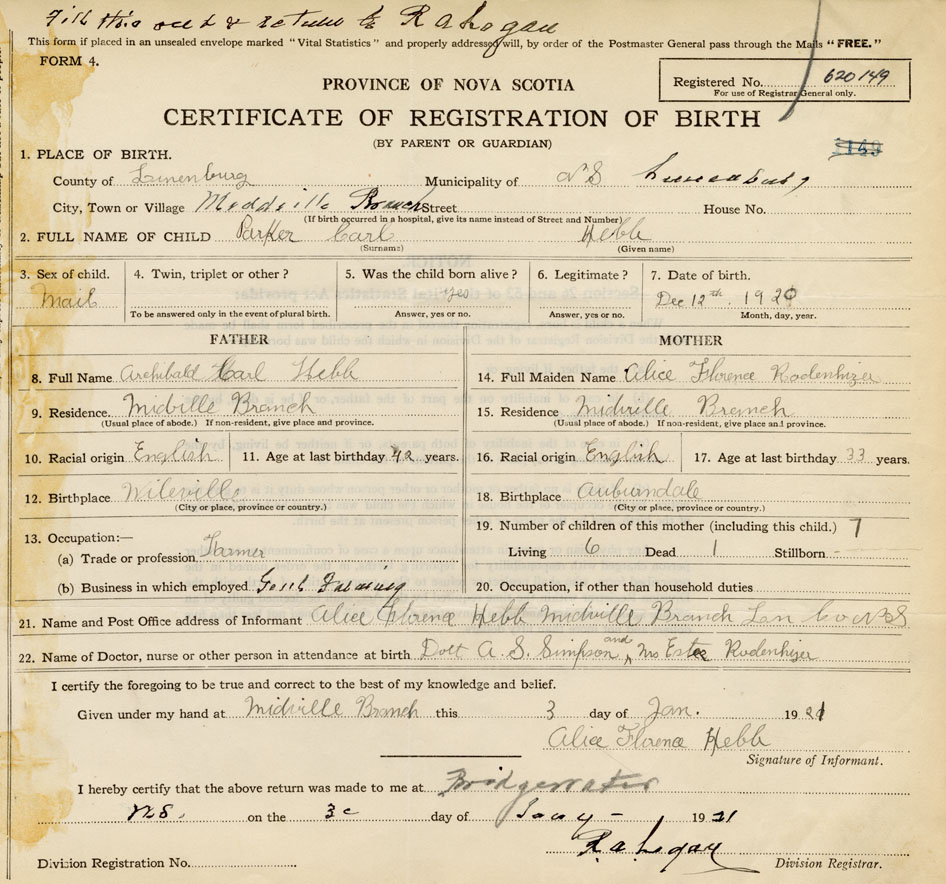 Fill this out & return to R a Logan
This form if placed in an unsealed envelope marked "Vital Statistics" and properly addressed will, by order of the Postmaster General pass through the Mails "FREE."
FORM 4.
PROVINCE OF NOVA SCOTIA
Registered No. 620149
For use of Registrar General only.
CERTIFICATE OF REGISTRATION OF BIRTH
(BY PARENT OR GUARDIAN)
149
1. PLACE OF BIRTH.
County of Lunenburg Municipality of NS Lunenburg
City, Town or Village Middville Branch Street House No.
(If birth occurred in a hospital, give its name instead of Street and Number)
2. FULL NAME OF CHILD Parker Carl Hebb
(Surname) (Given name)
3. Sex of child. 4. Twin, triplet or other? 5. Was the child born alive? 6. Legitimate? 7. Date of birth.
Mail yes Dec 12th. 1920
To be answered only in the event of plural birth. Answer, yes or no. Answer, yes or no. Month, day, year.
FATHER MOTHER
8. Full Name Archibald Carl Hebb 14. Full Maiden Name Alice Florence Rodenhizer
9. Residence. Midville Branch 15. Residence Midville Branch
(Usual place of abode.) If non-resident, give place and province. (Usual place of abode.) If non-resident, give place and province.
10. Racial origin English 11. Age at last birthday 42 years. 16. Racial origin English 17. Age at last birthday 33 years.
12. Birthplace Wileville 18. Birthplace Auburndale
(City or place, province or country.) (City or place, province or country.)
13. Occupation:— 19. Number of children of this mother (including this child.) 7
(a) Trade or profession Farmer Living 6 Dead 1 Stillborn -
(b) Business in which employed Genl Farming 20. Occupation, if other than household duties
21. Name and Post Office address of Informant Alice Florence Hebb Midville Branch Lun Co NS
22. Name of Doctor, nurse or other person in attendance at birth Dott A. S. Simpson and Mrs Ester Rodenhizer
I certify the foregoing to be true and correct to the best of my knowledge and belief.
Given under my hand at Midville Branch this 3 day of Jan. 1921
Alice Florence Hebb
Signature of Informant.
I hereby certify that the above return was made to me at Bridgewater
NS. on the 3 day of Jany - 1921
R a Logan
Division Registration No. Division Registrar.